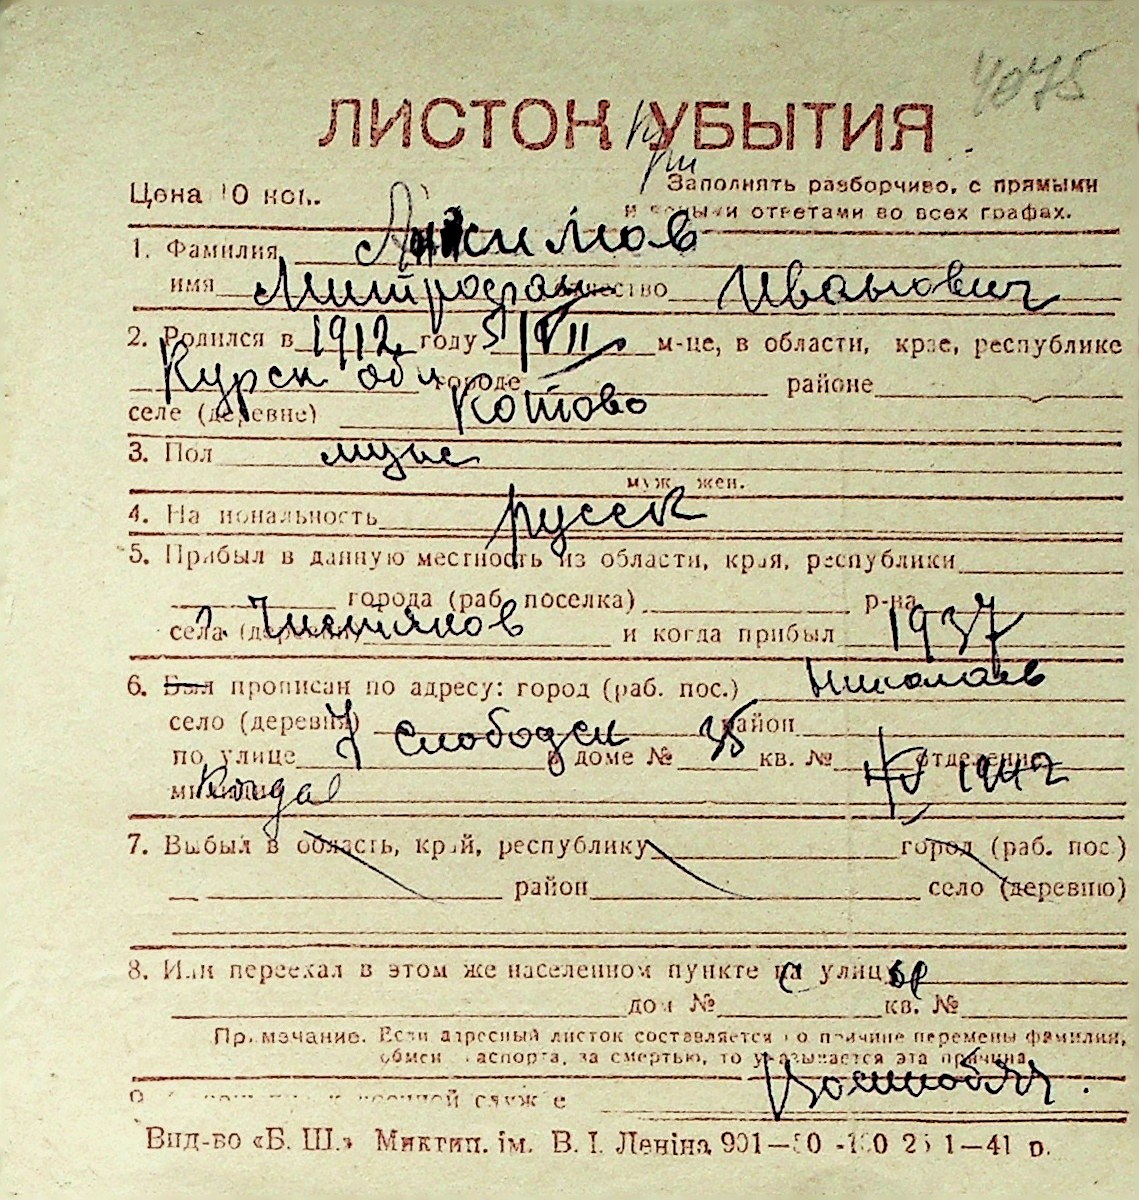 4075
ЛИСТОК УБЫТИЯ
при
Цена 10 коп.
Заполнять разборчиво, с прямыми
и ясными ответами во всех графах.
1. Фамилия Акимов
имя Митрофан отчество Иванович
2. Родился в 1912 году 5/VII м-це, в области, крае, республике
Курск обл городе районе
селе (деревне) Котово
3. Пол муж
муж. жен.
4. Национальность русск
5. Прибыл в данную местность из области, края, республики
города (раб. поселка) р-на
села (деревни) г. Чистяков и когда прибыл 1937
6. Был прописан по адресу: город (раб. пос.) Николаев
село (деревня) район
по улице 7 Слободск в доме № 35 кв. № отделение 1942
милиции
7. Выбыл в область, край, республику город (раб. пос.)
район село (деревню)
8. Или переехал в этом же населенном пункте на улицу
дом № кв. №
Примечание. Если адресный листок составляется по причине перемены фамилии,
обмен паспорта, за смертью, то указывается эта причина
военнообяз.
военной службе
Вид-во «Б. Ш.» Миктип. ім. В. І. Леніна 901—50 25 1—41 р.